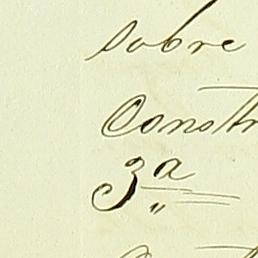 sobre
Constr
3a